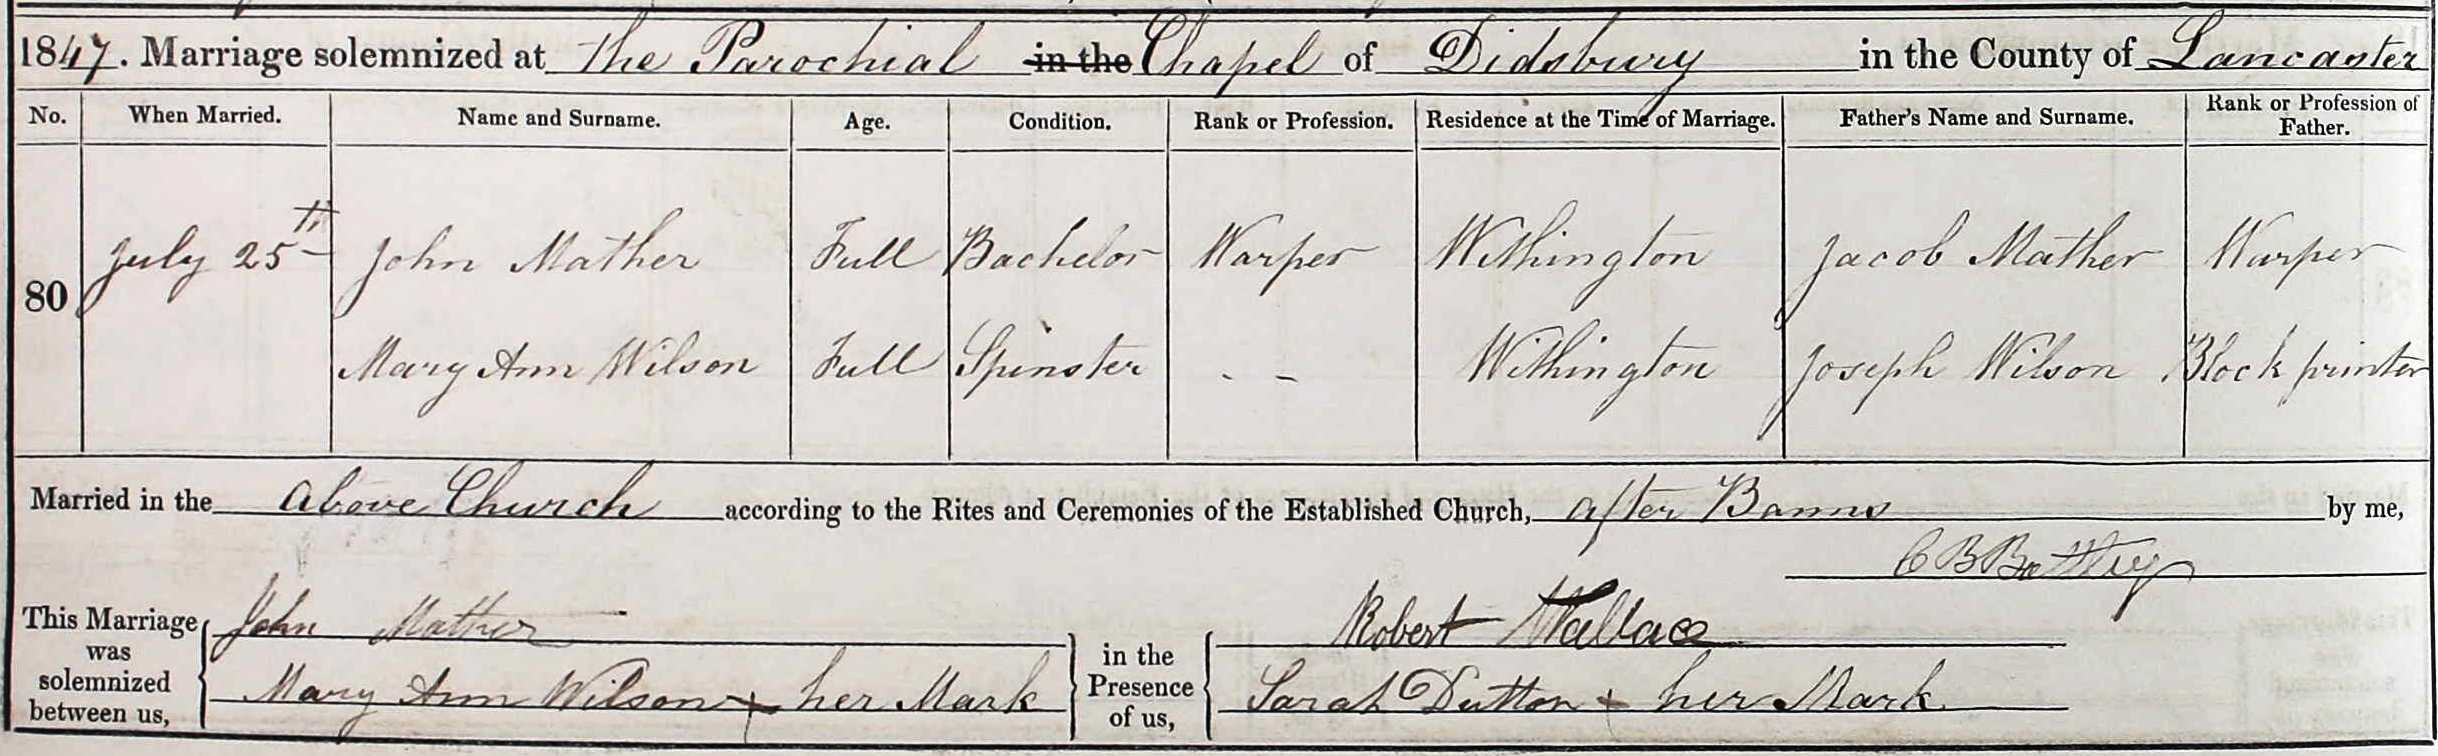 1847. Marriage solemnized at The Parochial in the Chapel of Didsbury in the County of Lancaster
No. When Married. Name and Surname. Age. Condition. Rank or Profession. Residence at the Time of Marriage. Father's Name and Surname. Rank or Profession of Father.
80 July 25th John Mather Full Bachelor Warper Withington Jacob Mather Warper
Mary Ann Wilson Full Spinster - - Withington Joseph Wilson Block printer
Married in the above Church according to the Rites and Ceremonies of the Established Church, after Banns by me,
C B
This Marriage was solemnized between us, John Mather in the Presence of us, Robert Wallace
Mary Ann Wilson + her Mark Sarah Dutton + her Mark